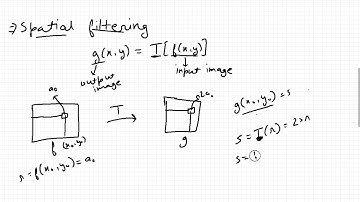 ⇒ Spatial filtering
g(x,y) = T[f(x,y)]
output image
input image
a₀
T
2a₀
f
(x₀,y₀)
g
r = f(x₀,y₀) = a₀
g(x₀,y₀) = s
s = T(r) = 2×r
s =